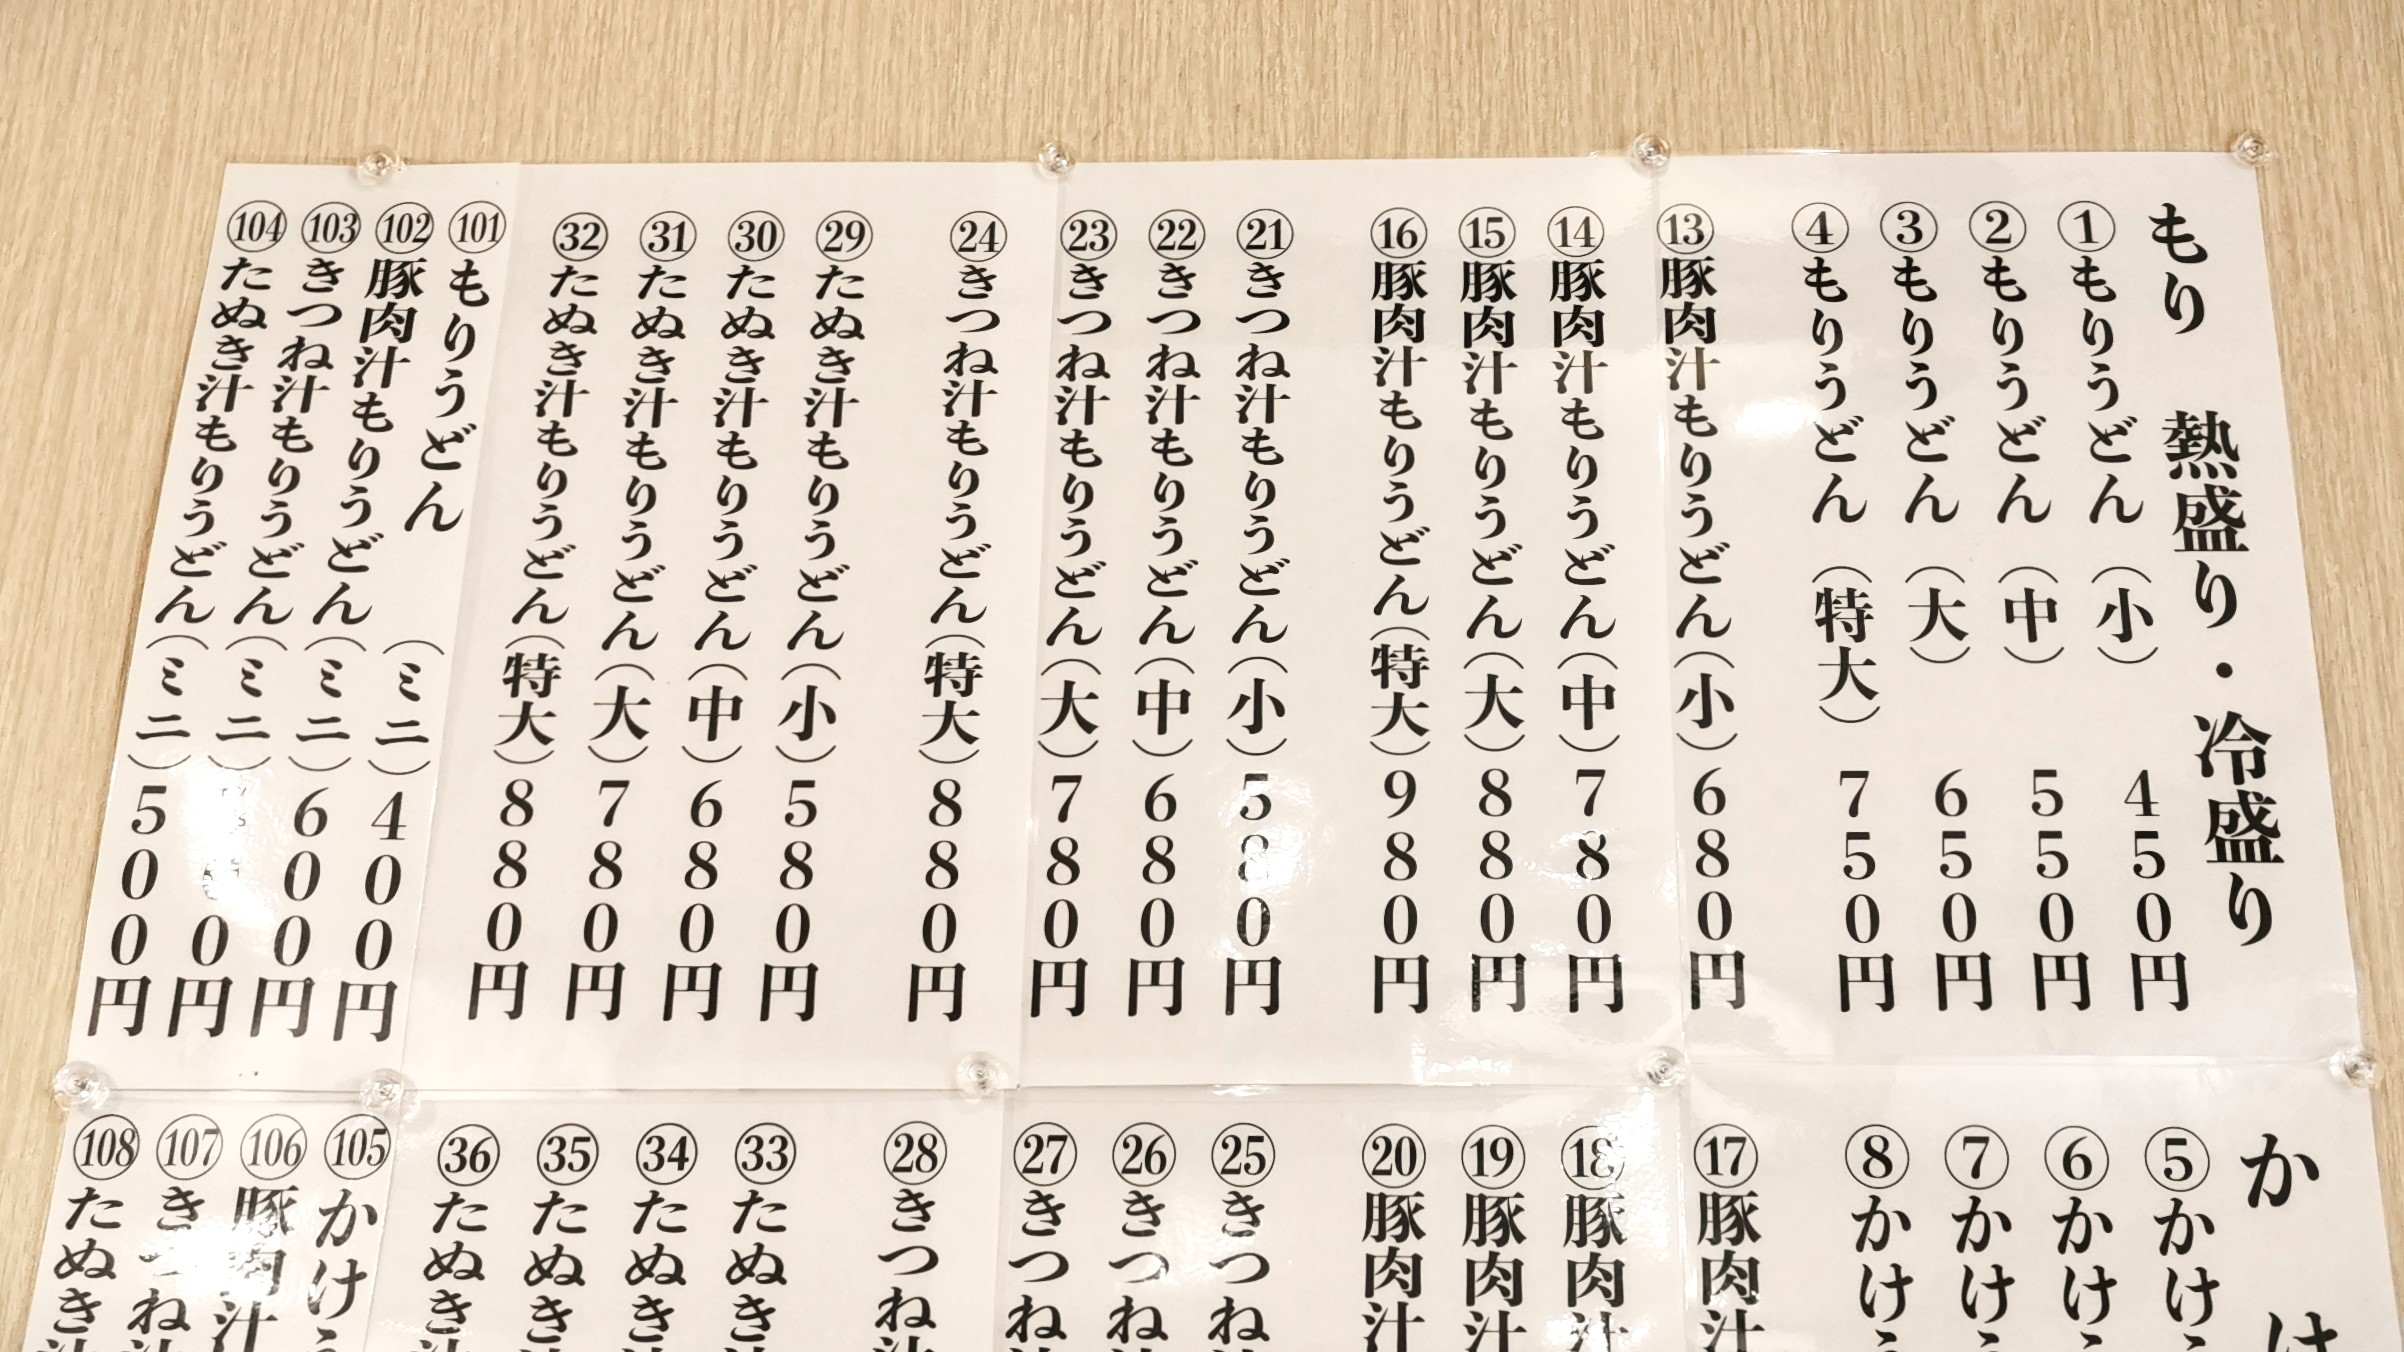 もり 熱盛り・冷盛り
①もりうどん（小） 450円
②もりうどん（中） 550円
③もりうどん（大） 650円
④もりうどん（特大） 750円
⑬豚肉汁もりうどん（小）680円
⑭豚肉汁もりうどん（中）780円
⑮豚肉汁もりうどん（大）880円
⑯豚肉汁もりうどん（特大）980円
㉑きつね汁もりうどん（小）580円
㉒きつね汁もりうどん（中）680円
㉓きつね汁もりうどん（大）780円
㉔きつね汁もりうどん（特大）880円
㉙たぬき汁もりうどん（小）580円
㉚たぬき汁もりうどん（中）680円
㉛たぬき汁もりうどん（大）780円
㉜たぬき汁もりうどん（特大）880円
(101)もりうどん （ミニ）400円
(102)豚肉汁もりうどん（ミニ）600円
(103)きつね汁もりうどん（ミニ） 円
(104)たぬき汁もりうどん（ミニ）500円
かけ
⑤かけう
⑥かけう
⑦かけう
⑧かけう
⑰豚肉汁
⑱豚肉汁
⑲豚肉汁
⑳豚肉汁
㉕きつね
㉖きつね
㉗きつね
㉘きつね汁
㉝たぬき
㉞たぬき
㉟たぬき
㊱たぬき汁
(105)かけう
(106)豚肉汁
(107)きつね汁
(108)たぬき汁